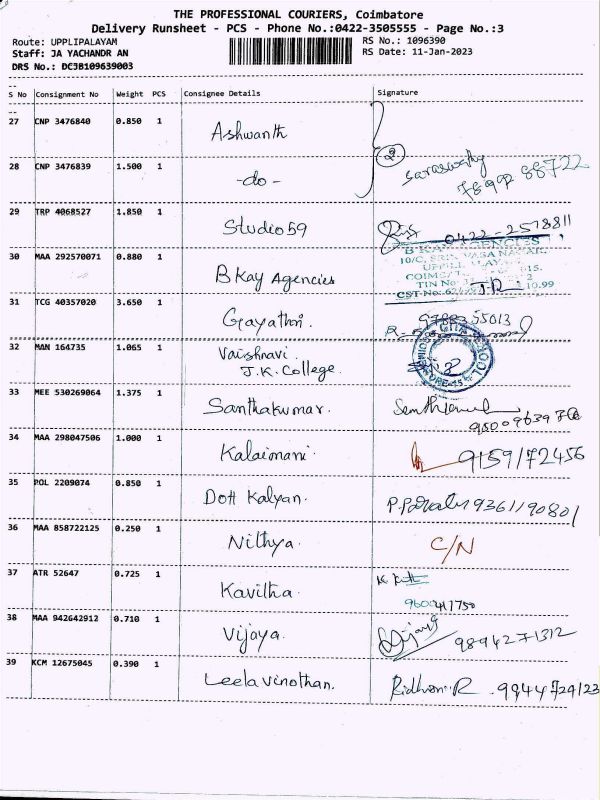 THE PROFESSIONAL COURIERS, Coimbatore
Delivery Runsheet - PCS - Phone No.:0422-3505555 - Page No.:3
Route: UPPLIPALAYAM RS No.: 1096390
Staff: JA YACHANDR AN RS Date: 11-Jan-2023
DRS No.: DCJB109639003
S No Consignment No Weight PCS Consignee Details Signature
27 CNP 3476840 0.850 1 Ashwanth
2
28 CNP 3476839 1.500 1 -do- Saraswathy
78992 88722
29 TRP 4068527 1.850 1 Studio 59 0422-2578811
30 MAA 292570071 0.880 1 B Kay Agencies B KAY AGENCIES
31 TCG 40357020 3.650 1 Gayathri. 9788355013
32 MAN 164735 1.065 1 Vaishnavi.
J.K. College.
33 MEE 530269064 1.375 1 Santhakumar.
34 MAA 298047506 1.000 1 Kalaimani. 9159172456
35 POL 2209074 0.850 1 Dott Kalyan. 9361190801
36 MAA 858722125 0.250 1 Nithya. C/N
37 ATR 52647 0.725 1 Kavitha
38 MAA 942642912 0.710 1 Vijaya. 9894271312
39 KCM 12675045 0.390 1 Leela vinothan. R. 9944724123